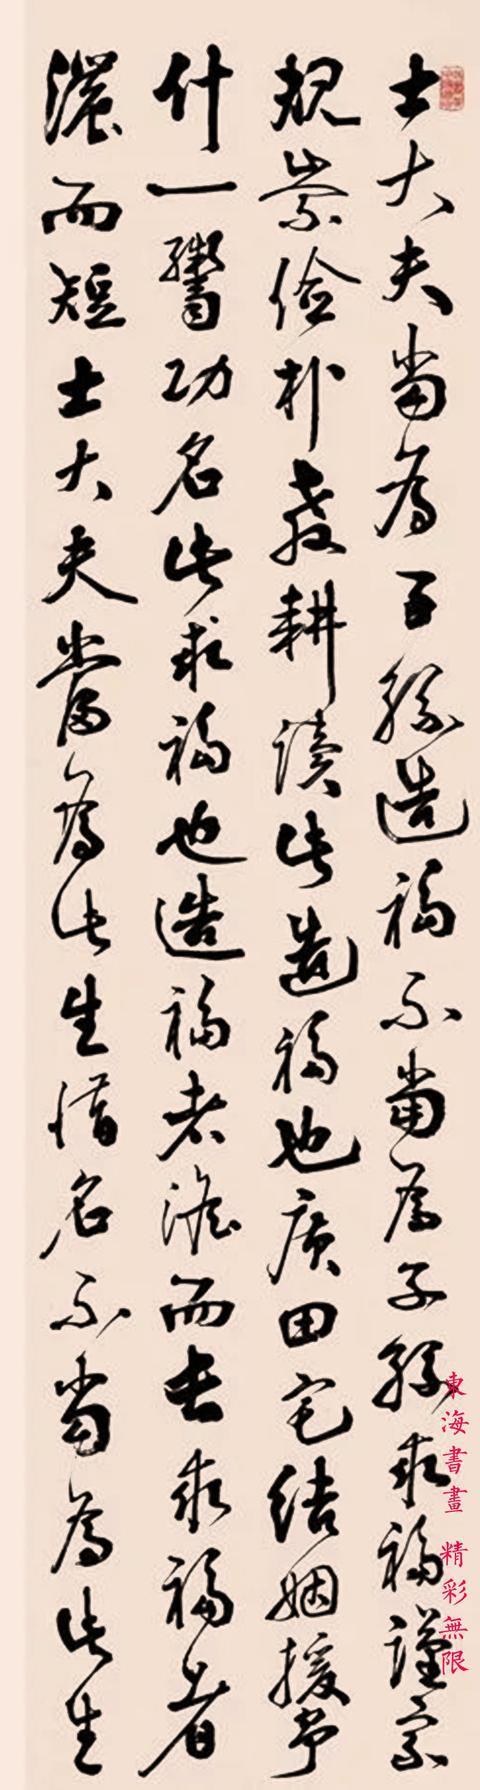 士大夫當為子孫造福不當為子孫求福謹家
規崇儉朴教耕讀此造福也廣田宅結姻援爭
什一鬻功名此求福也造福者澹而長求福者
濃而短士大夫當為此生惜名不當為此生
東海書畫 精彩無限